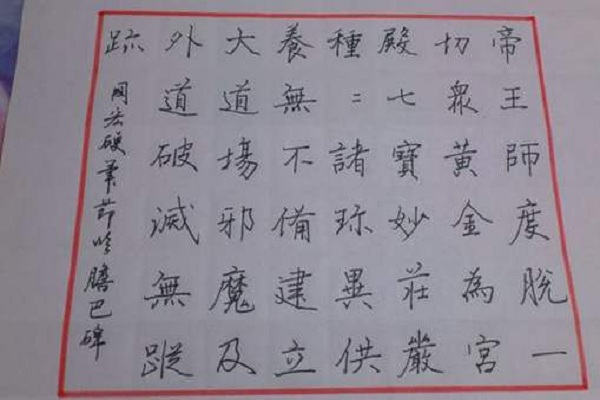 帝王師度脫一
切眾黃金為宮
殿七寶妙莊嚴
種二諸珎異供
養無不備建立
大道場邪魔及
外道破滅無蹤
跡
國法硬筆節临膽巴碑